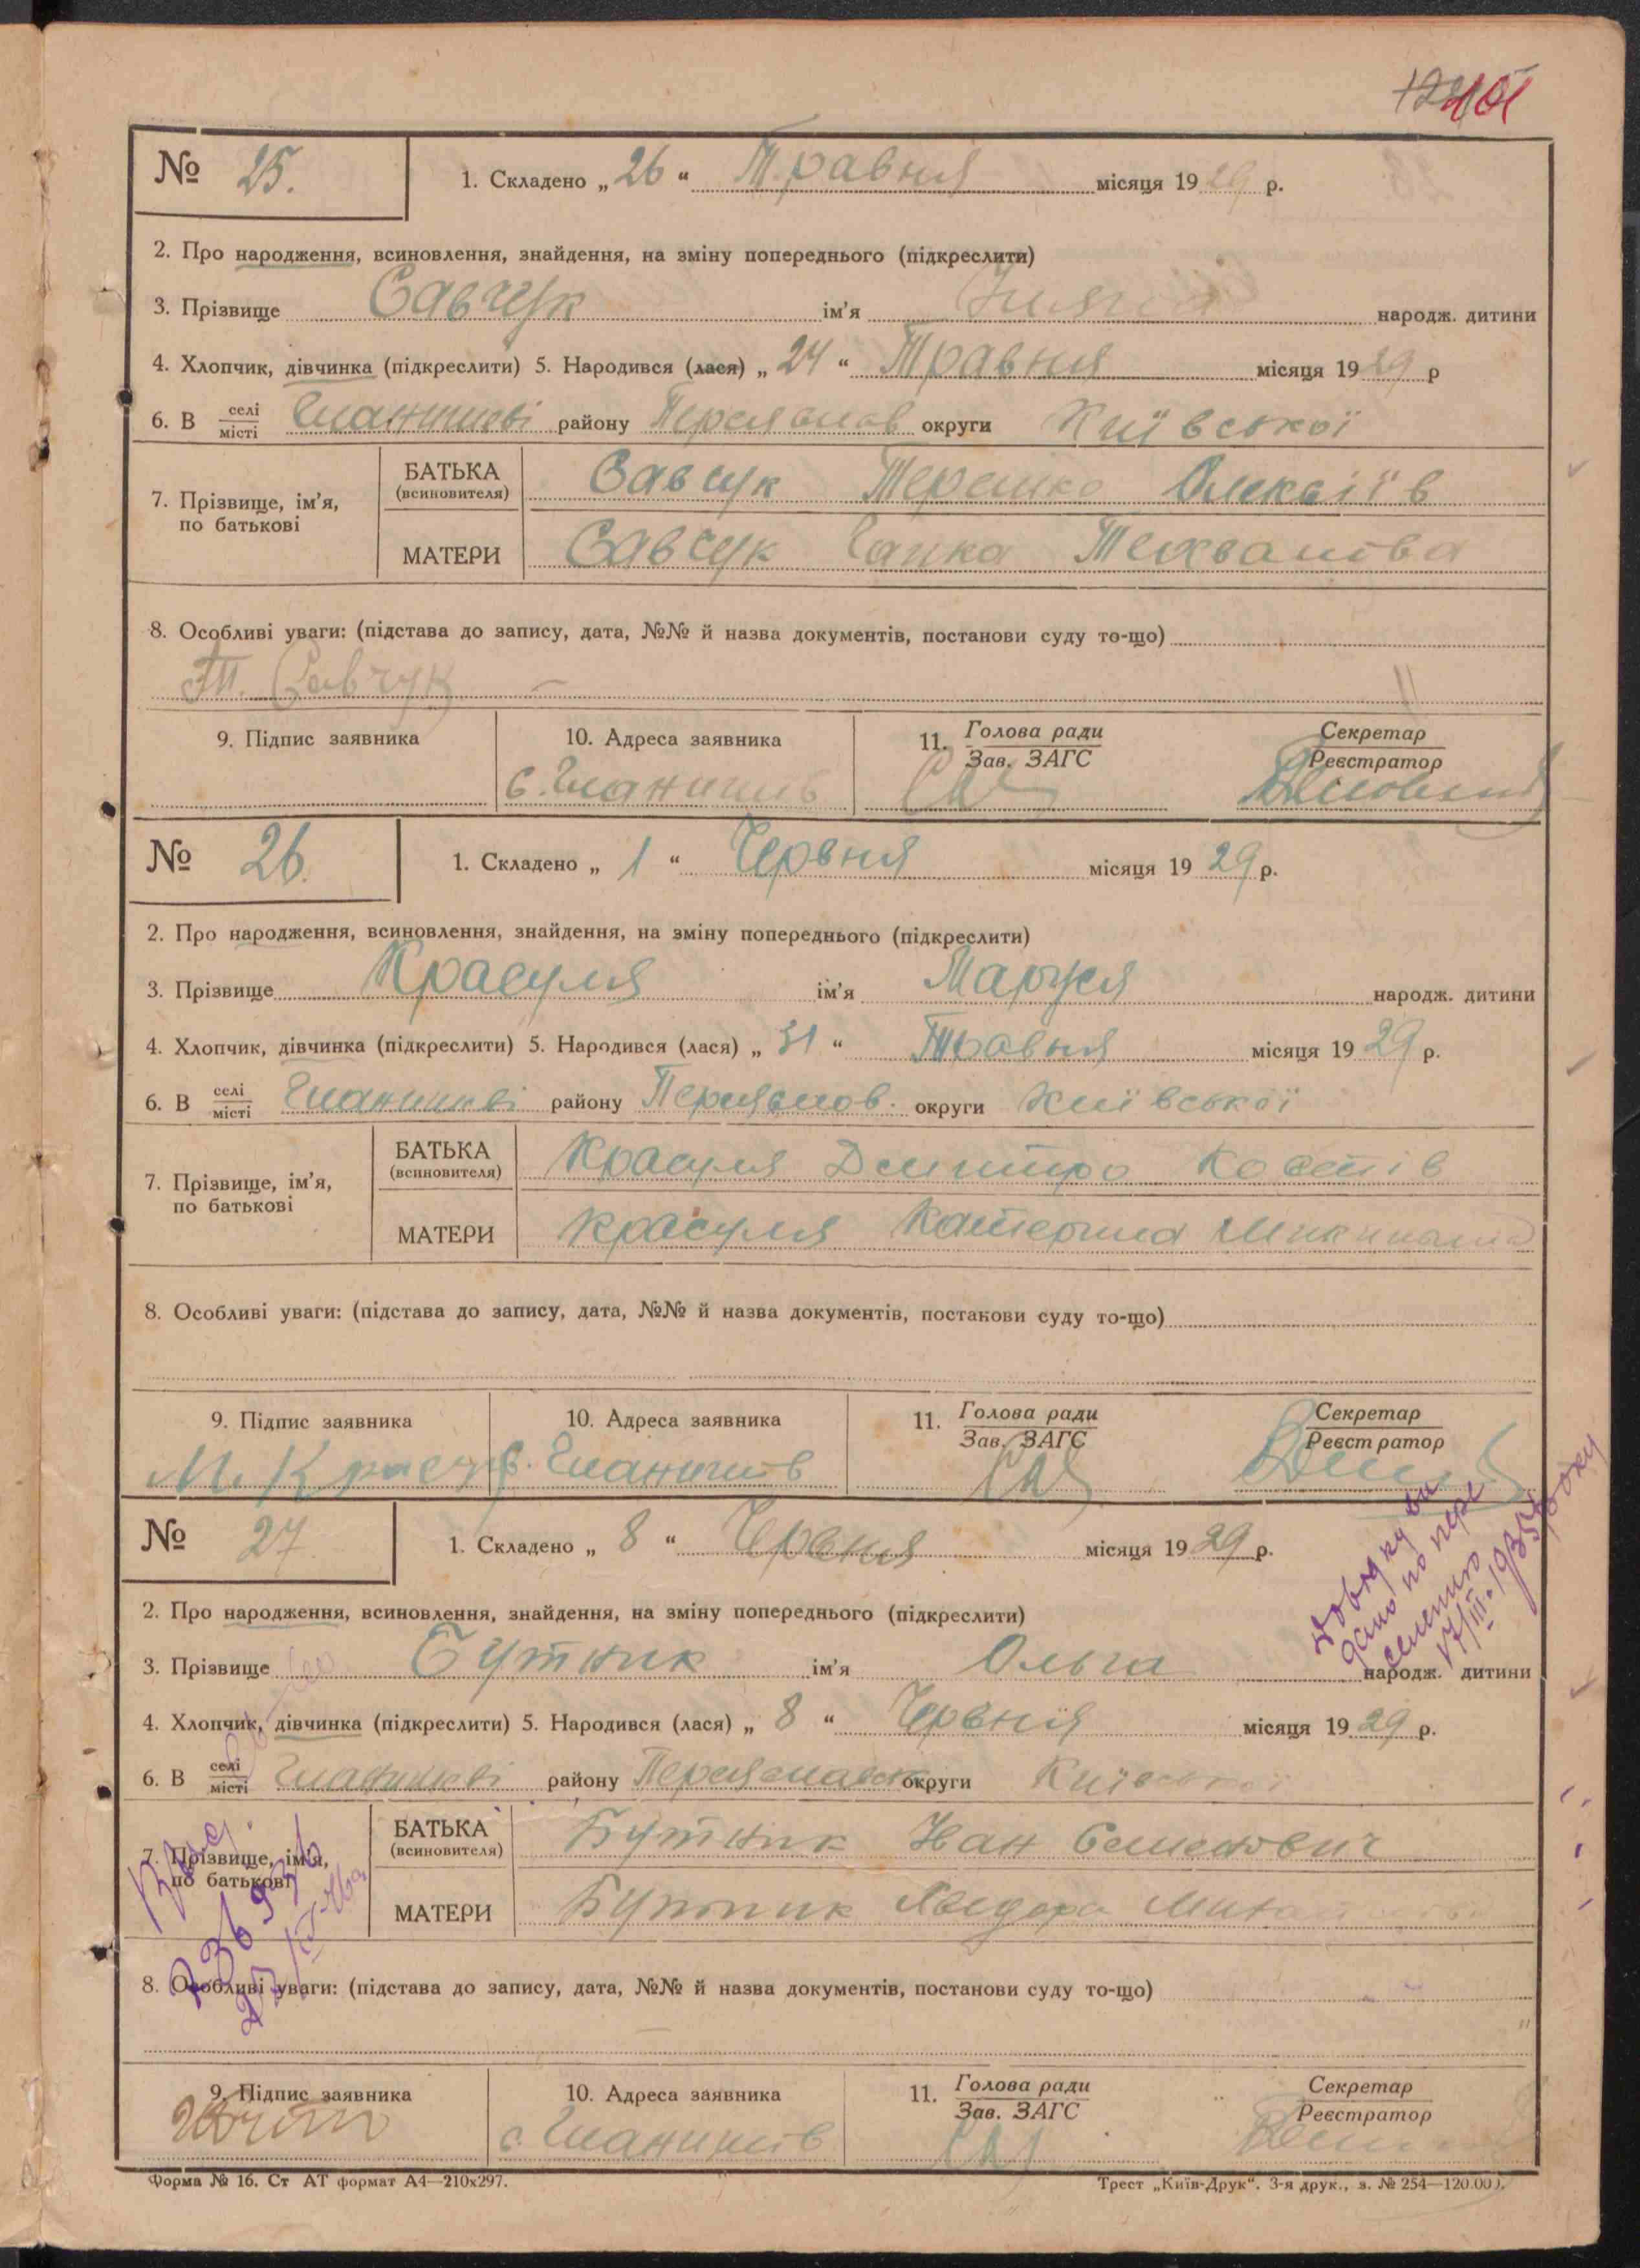 101
№ 25.
1. Складено „ 26 “ Травня місяця 1929 р.
2. Про народження, всиновлення, знайдення, на зміну попереднього (підкреслити)
3. Прізвище Савчук ім'я народж. дитини
4. Хлопчик, дівчинка (підкреслити) 5. Народився (лася) „ 24 “ Травня місяця 1929 р
6. В селі місті Гланишеві району Переяслов округи Київської
7. Прізвище, ім'я, по батькові
БАТЬКА (всиновителя) Савчук Терешко Олексіїв
МАТЕРИ Савчук Гапка
8. Особливі уваги: (підстава до запису, дата, №№ й назва документів, постанови суду то-що)
Т. Савчук
9. Підпис заявника
10. Адреса заявника
11. Голова ради Зав. ЗАГС
Секретар Реєстратор
с. Гланишів
№ 26.
1. Складено „ 1 “ Червня місяця 1929 р.
2. Про народження, всиновлення, знайдення, на зміну попереднього (підкреслити)
3. Прізвище Красуля ім'я Маруся народж. дитини
4. Хлопчик, дівчинка (підкреслити) 5. Народився (лася) „ 31 “ Травня місяця 1929 р.
6. В селі місті Гланишеві району Переяслов. округи Київської
7. Прізвище, ім'я, по батькові
БАТЬКА (всиновителя) Красуля Дмитро Костів
МАТЕРИ Красуля Катерина
8. Особливі уваги: (підстава до запису, дата, №№ й назва документів, постанови суду то-що)
9. Підпис заявника
10. Адреса заявника
11. Голова ради Зав. ЗАГС
Секретар Реєстратор
с. Гланишів
№ 27.
1. Складено „ 8 “ Червня місяця 1929 р.
2. Про народження, всиновлення, знайдення, на зміну попереднього (підкреслити)
3. Прізвище Бутник ім'я Ольга народж. дитини
4. Хлопчик, дівчинка (підкреслити) 5. Народився (лася) „ 8 “ Червня місяця 1929 р.
6. В селі місті Гланишеві району Переяславск округи Київської
7. Прізвище, ім'я, по батькові
БАТЬКА (всиновителя) Бутник Іван Семенович
МАТЕРИ Бутник Явдоха
8. Особливі уваги: (підстава до запису, дата, №№ й назва документів, постанови суду то-що)
9. Підпис заявника
10. Адреса заявника
11. Голова ради Зав. ЗАГС
Секретар Реєстратор
с. Гланишів
Форма № 16. Ст АТ формат А4—210х297.
Трест „Київ-Друк“. 3-я друк., з. № 254—120.000.